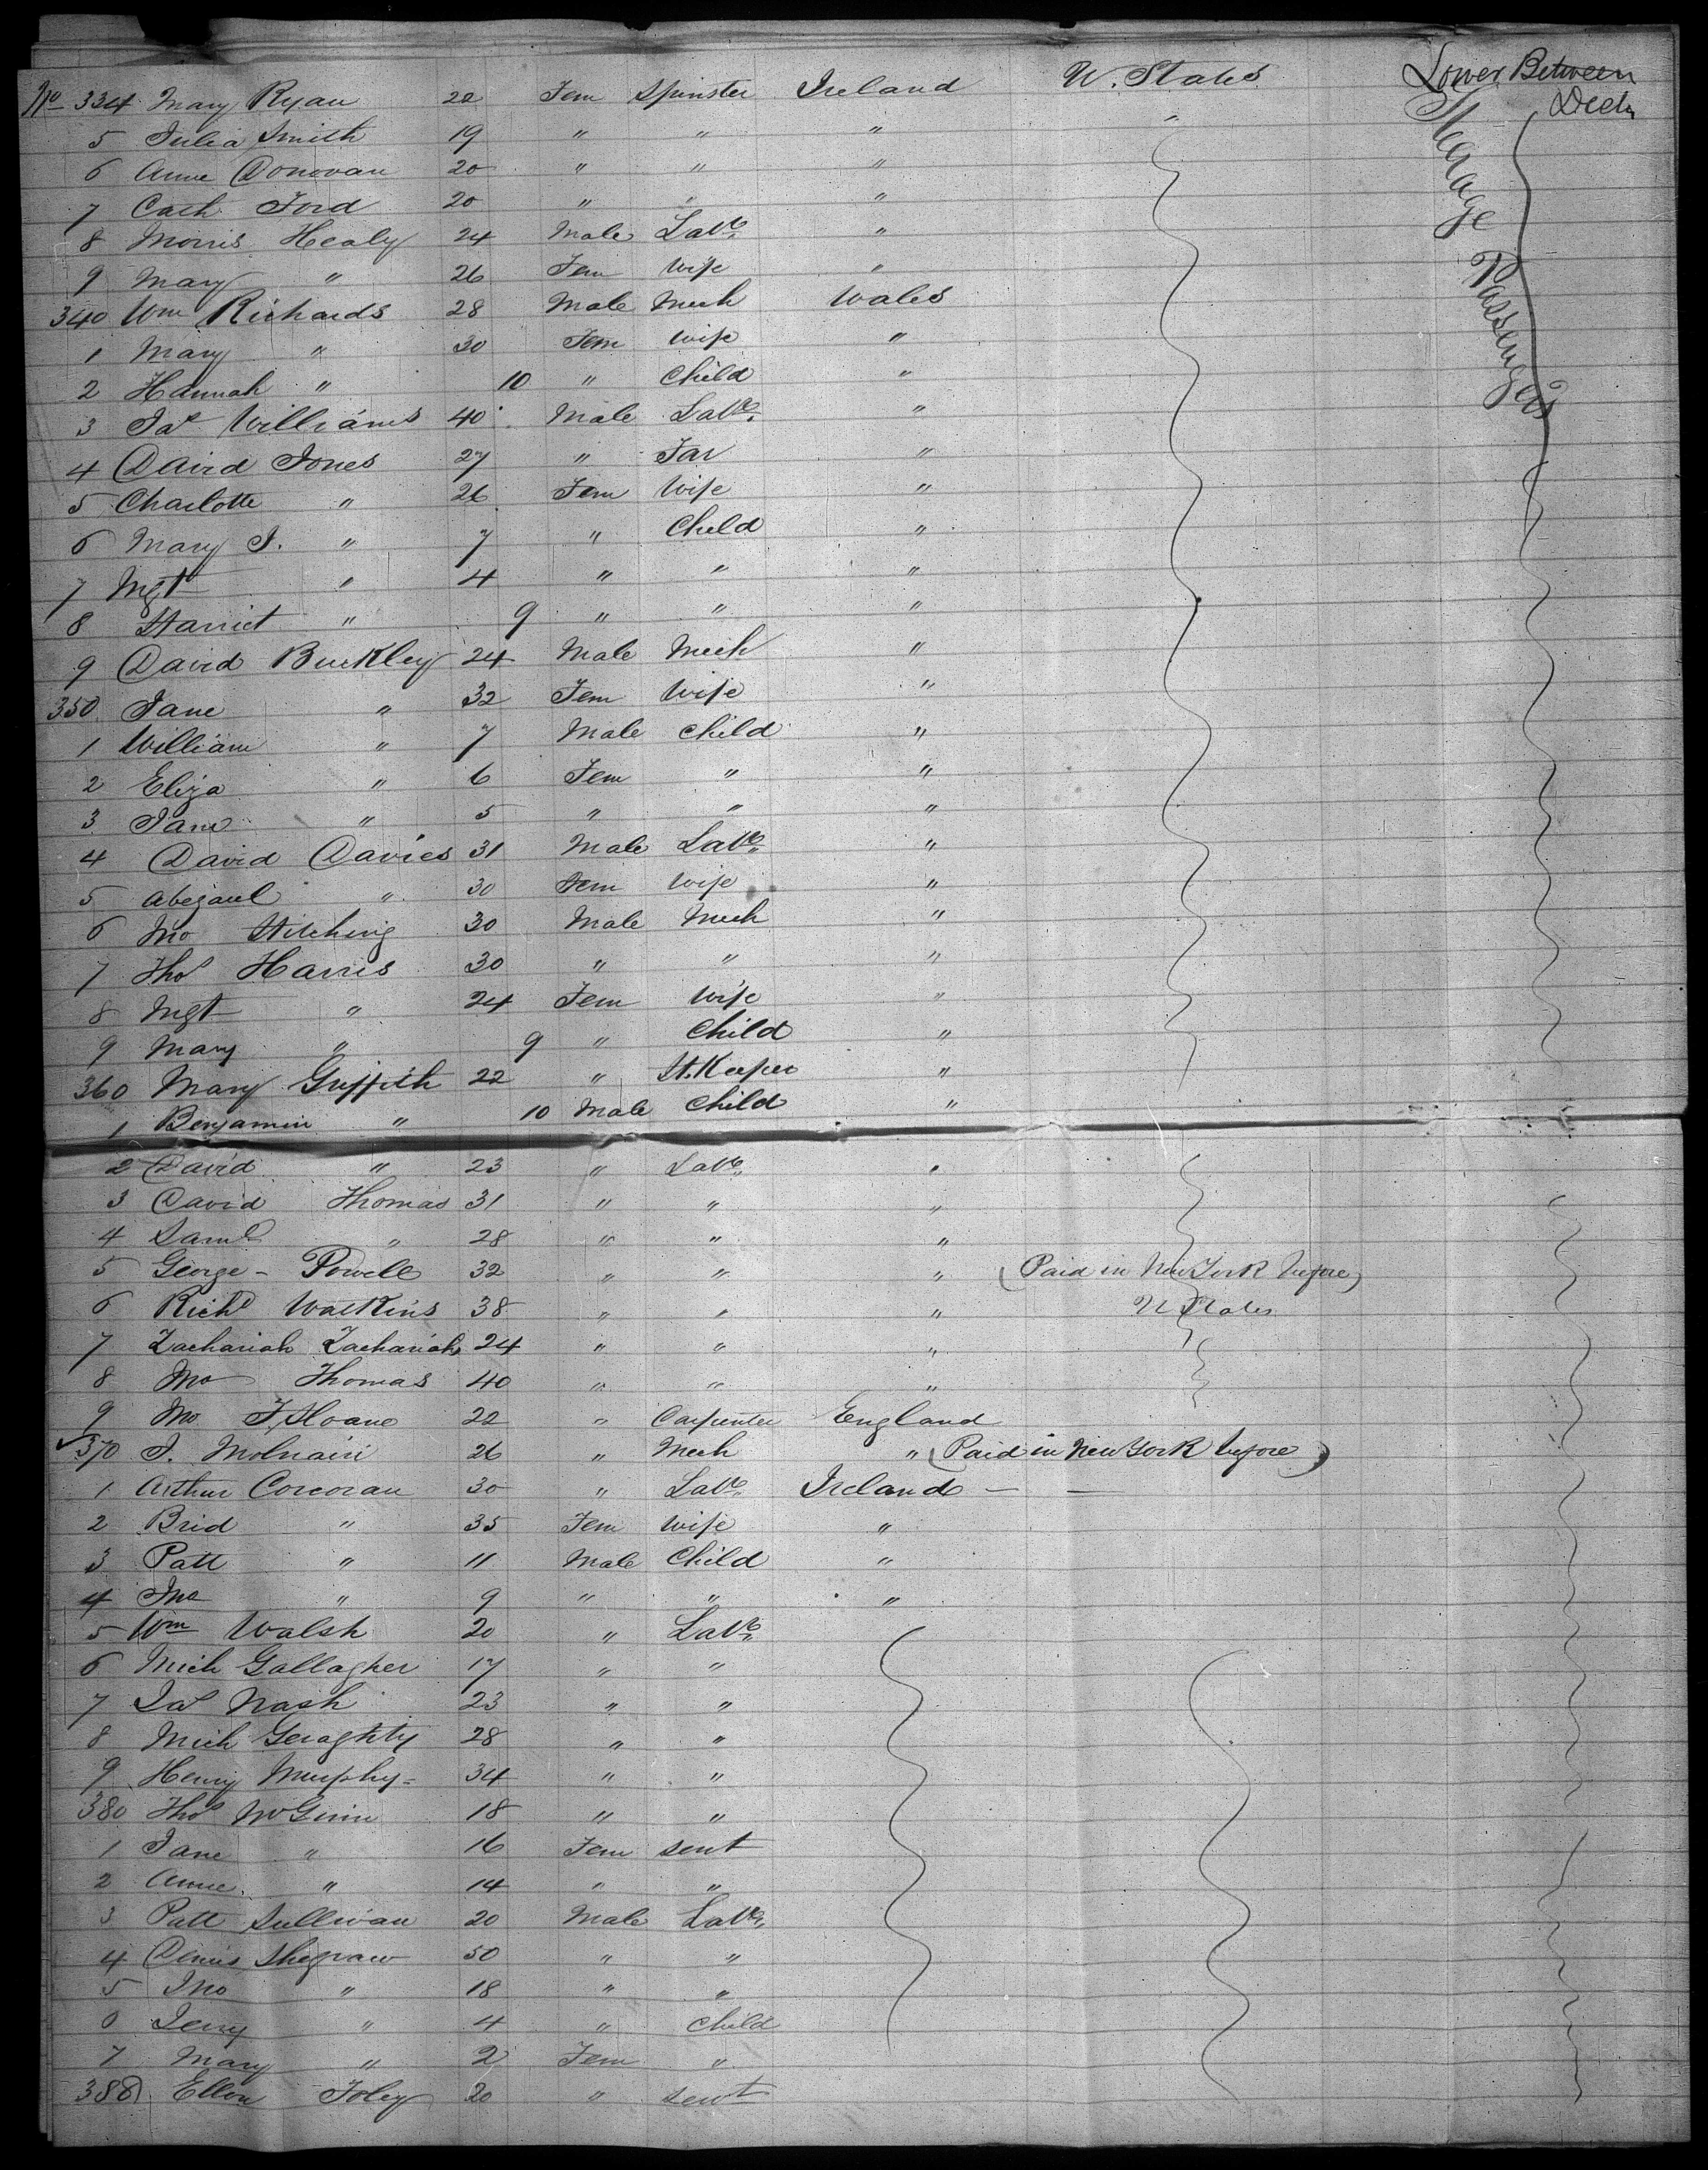 No 334 Mary Ryan 20 Fem Spinster Ireland U. States Lower Between Decks
Steerage Passengers
5 Julia Smith 19 " " " "
6 Anne Donovan 20 " " "
7 Cath Ford 20 " " "
8 Morris Healy 24 Male Labr "
9 Mary " 26 Fem Wife "
340 Wm Richards 28 Male Mech Wales
1 Mary " 30 Fem Wife "
2 Hannah " 10 " Child "
3 Jas Williams 40 Male Labr "
4 David Jones 27 " Far "
5 Charlotte " 26 Fem Wife "
6 Mary J. " 7 " Child "
7 Mgt " 4 " " "
8 Harriet " 9 " " "
9 David Buckley 24 Male Mech "
350 Jane " 32 Fem Wife "
1 William " 7 Male Child "
2 Eliza " 6 Fem " "
3 Jane " 5 " " "
4 David Davies 31 Male Labr "
5 Abegaul " 30 Fem Wife "
6 Jno Hitching 30 Male Mech "
7 Thos Harris 30 " " "
8 Mgt " 24 Fem Wife "
9 Mary " 9 " Child "
360 Mary Griffith 22 " St. Keeper "
1 Benjamin " 10 Male Child "
2 David " 23 " Labr "
3 David Thomas 31 " " "
4 Saml " 28 " " "
5 George - Powell 32 " " " (Paid in New York before)
6 Richd Watkins 38 " " " U States
7 Zachariah Zachariah 24 " " "
8 Jno Thomas 40 " " "
9 Jno Sloane 22 " Carpenter England
370 J. 26 " Mech " (Paid in New York before)
1 Arthur Corcoran 30 " Labr Ireland — —
2 Brid " 35 Fem Wife "
3 Patt " 11 Male Child "
4 Jno " 9 " " "
5 Wm Walsh 20 " Labr
6 Mich Gallagher 17 " "
7 Jas Nash 23 " "
8 Mich Geraghty 28 " "
9 Henry Murphy - 34 " "
380 Thos McGinn 18 " "
1 Jane " 16 Fem Sert
2 Anne " 14 " "
3 Patt Sullivan 20 Male Labr
4 Denis 50 " "
5 Jno " 18 " "
6 Jerry " 4 " Child
7 Mary " 2 Fem "
388 Ellen Foley 20 " Sert